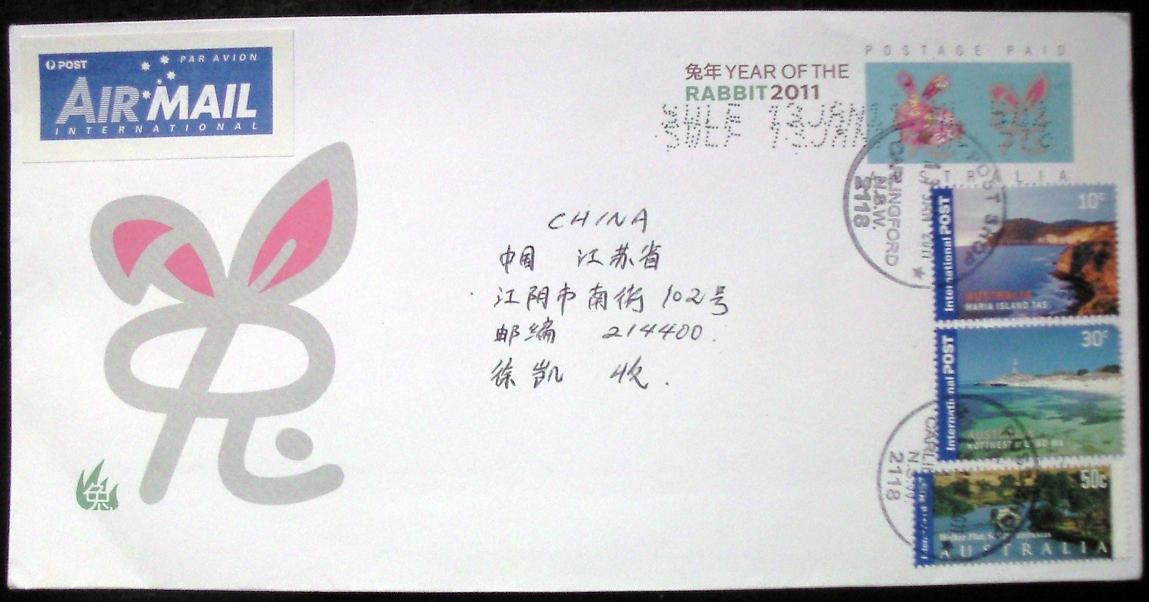 POST PAR AVION
AIR MAIL
INTERNATIONAL
兔年 YEAR OF THE
RABBIT 2011
POSTAGE PAID
AUSTRALIA
SWLF 13JAN
SWLF 13JAN
POST SHOP
13 JAN 2011
CARLINGFORD
N.S.W.
2118
CHINA
中国 江苏省
江阴市南街102号
邮编 214400.
徐凯 收.
兔
10c
International POST
AUSTRALIA
MARIA ISLAND TAS
30c
International POST
ROTTNEST ISLAND WA
N.S.W.
2118
50c
AUSTRALIA